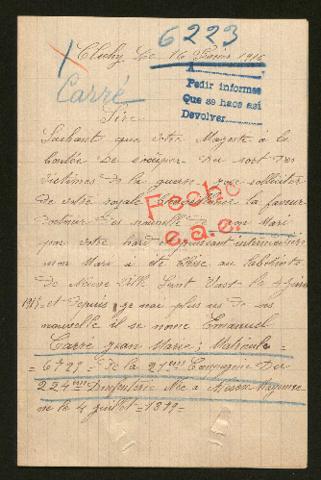 6223
Clichy, Le 16 Février 1916
Carré
A
Pedir informes
Que se hace así
Devolver
Sire
Sachant que votre Majesté à la
bonté de s'occuper du sort des
victimes de la guerre, je sollicite
de votre royale la faveur
nouvelle de mon Mari
par votre haut et puissant
mon Mari a été au Labyrinthe
de Neuville Saint Vast le 4 Juin
1915 et depuis je nai plus eu de ses
nouvelle il se nome Emanuel
Carré Jean Marie, Matricule =
6729 = de la 21eme Compagnie Du
224eme Dinfanterie Né a Mayenne
ne le 4 juillet = 1879 =
Fecho
e.a.c.